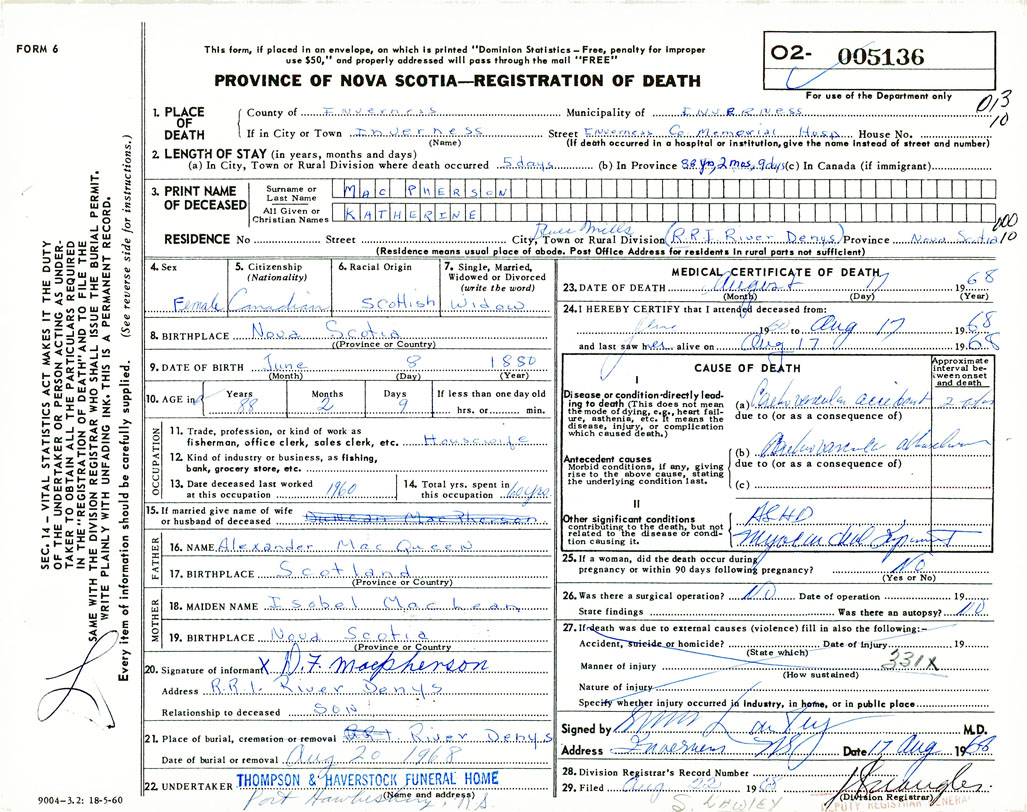 FORM 6
This form, if placed in an envelope, on which is printed "Dominion Statistics – Free, penalty for improper
use $50," and properly addressed will pass through the mail "FREE"
PROVINCE OF NOVA SCOTIA—REGISTRATION OF DEATH
O2- 005136
For use of the Department only
013
10
1. PLACE OF DEATH
County of Inverness Municipality of INVERNESS
If in City or Town Inverness Street Inverness Co. Memorial Hosp House No.
(Name) (If death occurred in a hospital or institution, give the name instead of street and number)
2. LENGTH OF STAY (in years, months and days)
(a) In City, Town or Rural Division where death occurred 5 days (b) In Province 88 yrs 2 mos. 9 days (c) In Canada (if immigrant)
3. PRINT NAME OF DECEASED
Surname or Last Name MAC PHERSON
All Given or Christian Names KATHERINE
000
10
RESIDENCE No Street City, Town or Rural Division Mills (R.R.1 River Denys) Province Nova Scotia
(Residence means usual place of abode. Post Office Address for residents in rural parts not sufficient)
4. Sex Female
5. Citizenship (Nationality) Canadian
6. Racial Origin Scottish
7. Single, Married, Widowed or Divorced (write the word) Widow
8. BIRTHPLACE Nova Scotia
(Province or Country)
9. DATE OF BIRTH June 8 1880
(Month) (Day) (Year)
10. AGE in Years 88 Months 2 Days 9 If less than one day old hrs. or min.
OCCUPATION
11. Trade, profession, or kind of work as
fisherman, office clerk, sales clerk, etc. Housewife
12. Kind of industry or business, as fishing,
bank, grocery store, etc.
13. Date deceased last worked at this occupation 1960
14. Total yrs. spent in this occupation 60 yrs
15. If married give name of wife
or husband of deceased Duncan MacPherson
FATHER
16. NAME Alexander MacQueen
17. BIRTHPLACE Scotland
(Province or Country)
MOTHER
18. MAIDEN NAME Isobel MacLean
19. BIRTHPLACE Nova Scotia
(Province or Country)
20. Signature of informant X D. F. Macpherson
Address R.R.1. River Denys
Relationship to deceased SON
21. Place of burial, cremation or removal RR1 River Denys
Date of burial or removal Aug 20 1968
22. UNDERTAKER THOMPSON & HAVERSTOCK FUNERAL HOME
(Name and address)
Port Hawkesbury, N.S.
9004-3.2: 18-5-60
MEDICAL CERTIFICATE OF DEATH
23. DATE OF DEATH August 17 1968
(Month) (Day) (Year)
24. I HEREBY CERTIFY that I attended deceased from:
June 1960 to Aug 17 1968
and last saw her alive on Aug 17 1968
CAUSE OF DEATH
Approximate interval between onset and death
I
Disease or condition directly leading to death (This does not mean the mode of dying, e.g., heart failure, asthenia, etc. It means the disease, injury, or complication which caused death.)
(a) accident 2
due to (or as a consequence of)
Antecedent causes
Morbid conditions, if any, giving rise to the above cause, stating the underlying condition last.
(b)
due to (or as a consequence of)
(c)
II
Other significant conditions contributing to the death, but not related to the disease or condition causing it.
ASHD
25. If a woman, did the death occur during
pregnancy or within 90 days following pregnancy? NO
(Yes or No)
26. Was there a surgical operation? NO Date of operation 19
State findings Was there an autopsy? NO
27. If death was due to external causes (violence) fill in also the following:–
Accident, suicide or homicide? Date of injury 19
(State which)
331X
Manner of injury
(How sustained)
Nature of injury
Specify whether injury occurred in industry, in home, or in public place
Signed by M.D.
Address Inverness NS Date 17 Aug 1968
28. Division Registrar's Record Number
29. Filed Aug 22 1968
(Division Registrar)
DEPUTY REGISTRAR GENERAL
S. LAWLEY
SEC. 14 – VITAL STATISTICS ACT MAKES IT THE DUTY
OF THE UNDERTAKER OR PERSON ACTING AS UNDER-
TAKER TO OBTAIN ALL THE PARTICULARS REQUIRED
IN THE "REGISTRATION OF DEATH" AND TO FILE THE
SAME WITH THE DIVISION REGISTRAR WHO SHALL ISSUE THE BURIAL PERMIT.
WRITE PLAINLY WITH UNFADING INK. THIS IS A PERMANENT RECORD.
Every item of information should be carefully supplied. (See reverse side for instructions.)